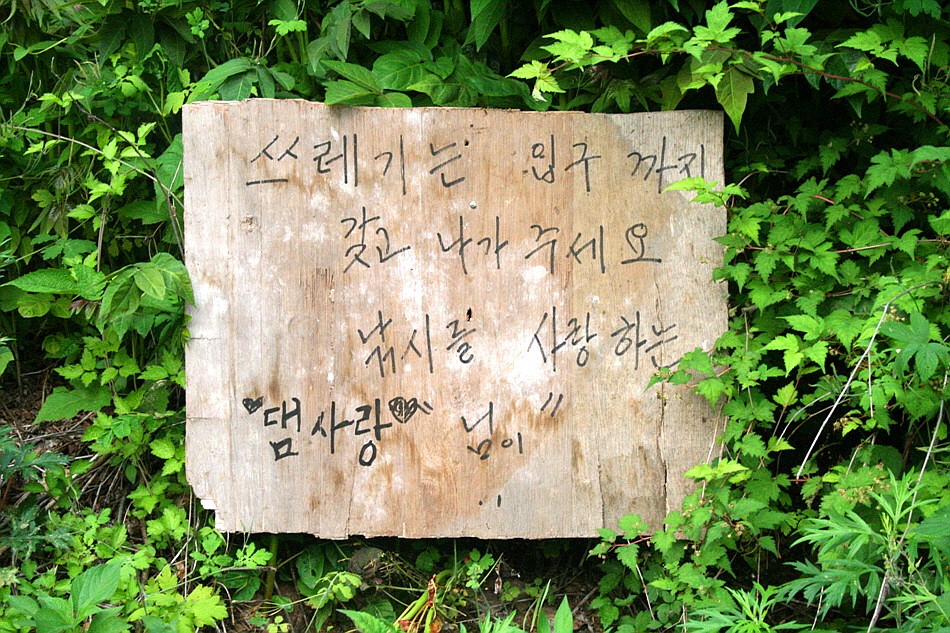 쓰레기는 입구 까지
갖고 나가 주세요
낚시를 사랑하는
"댐사랑" 님이"